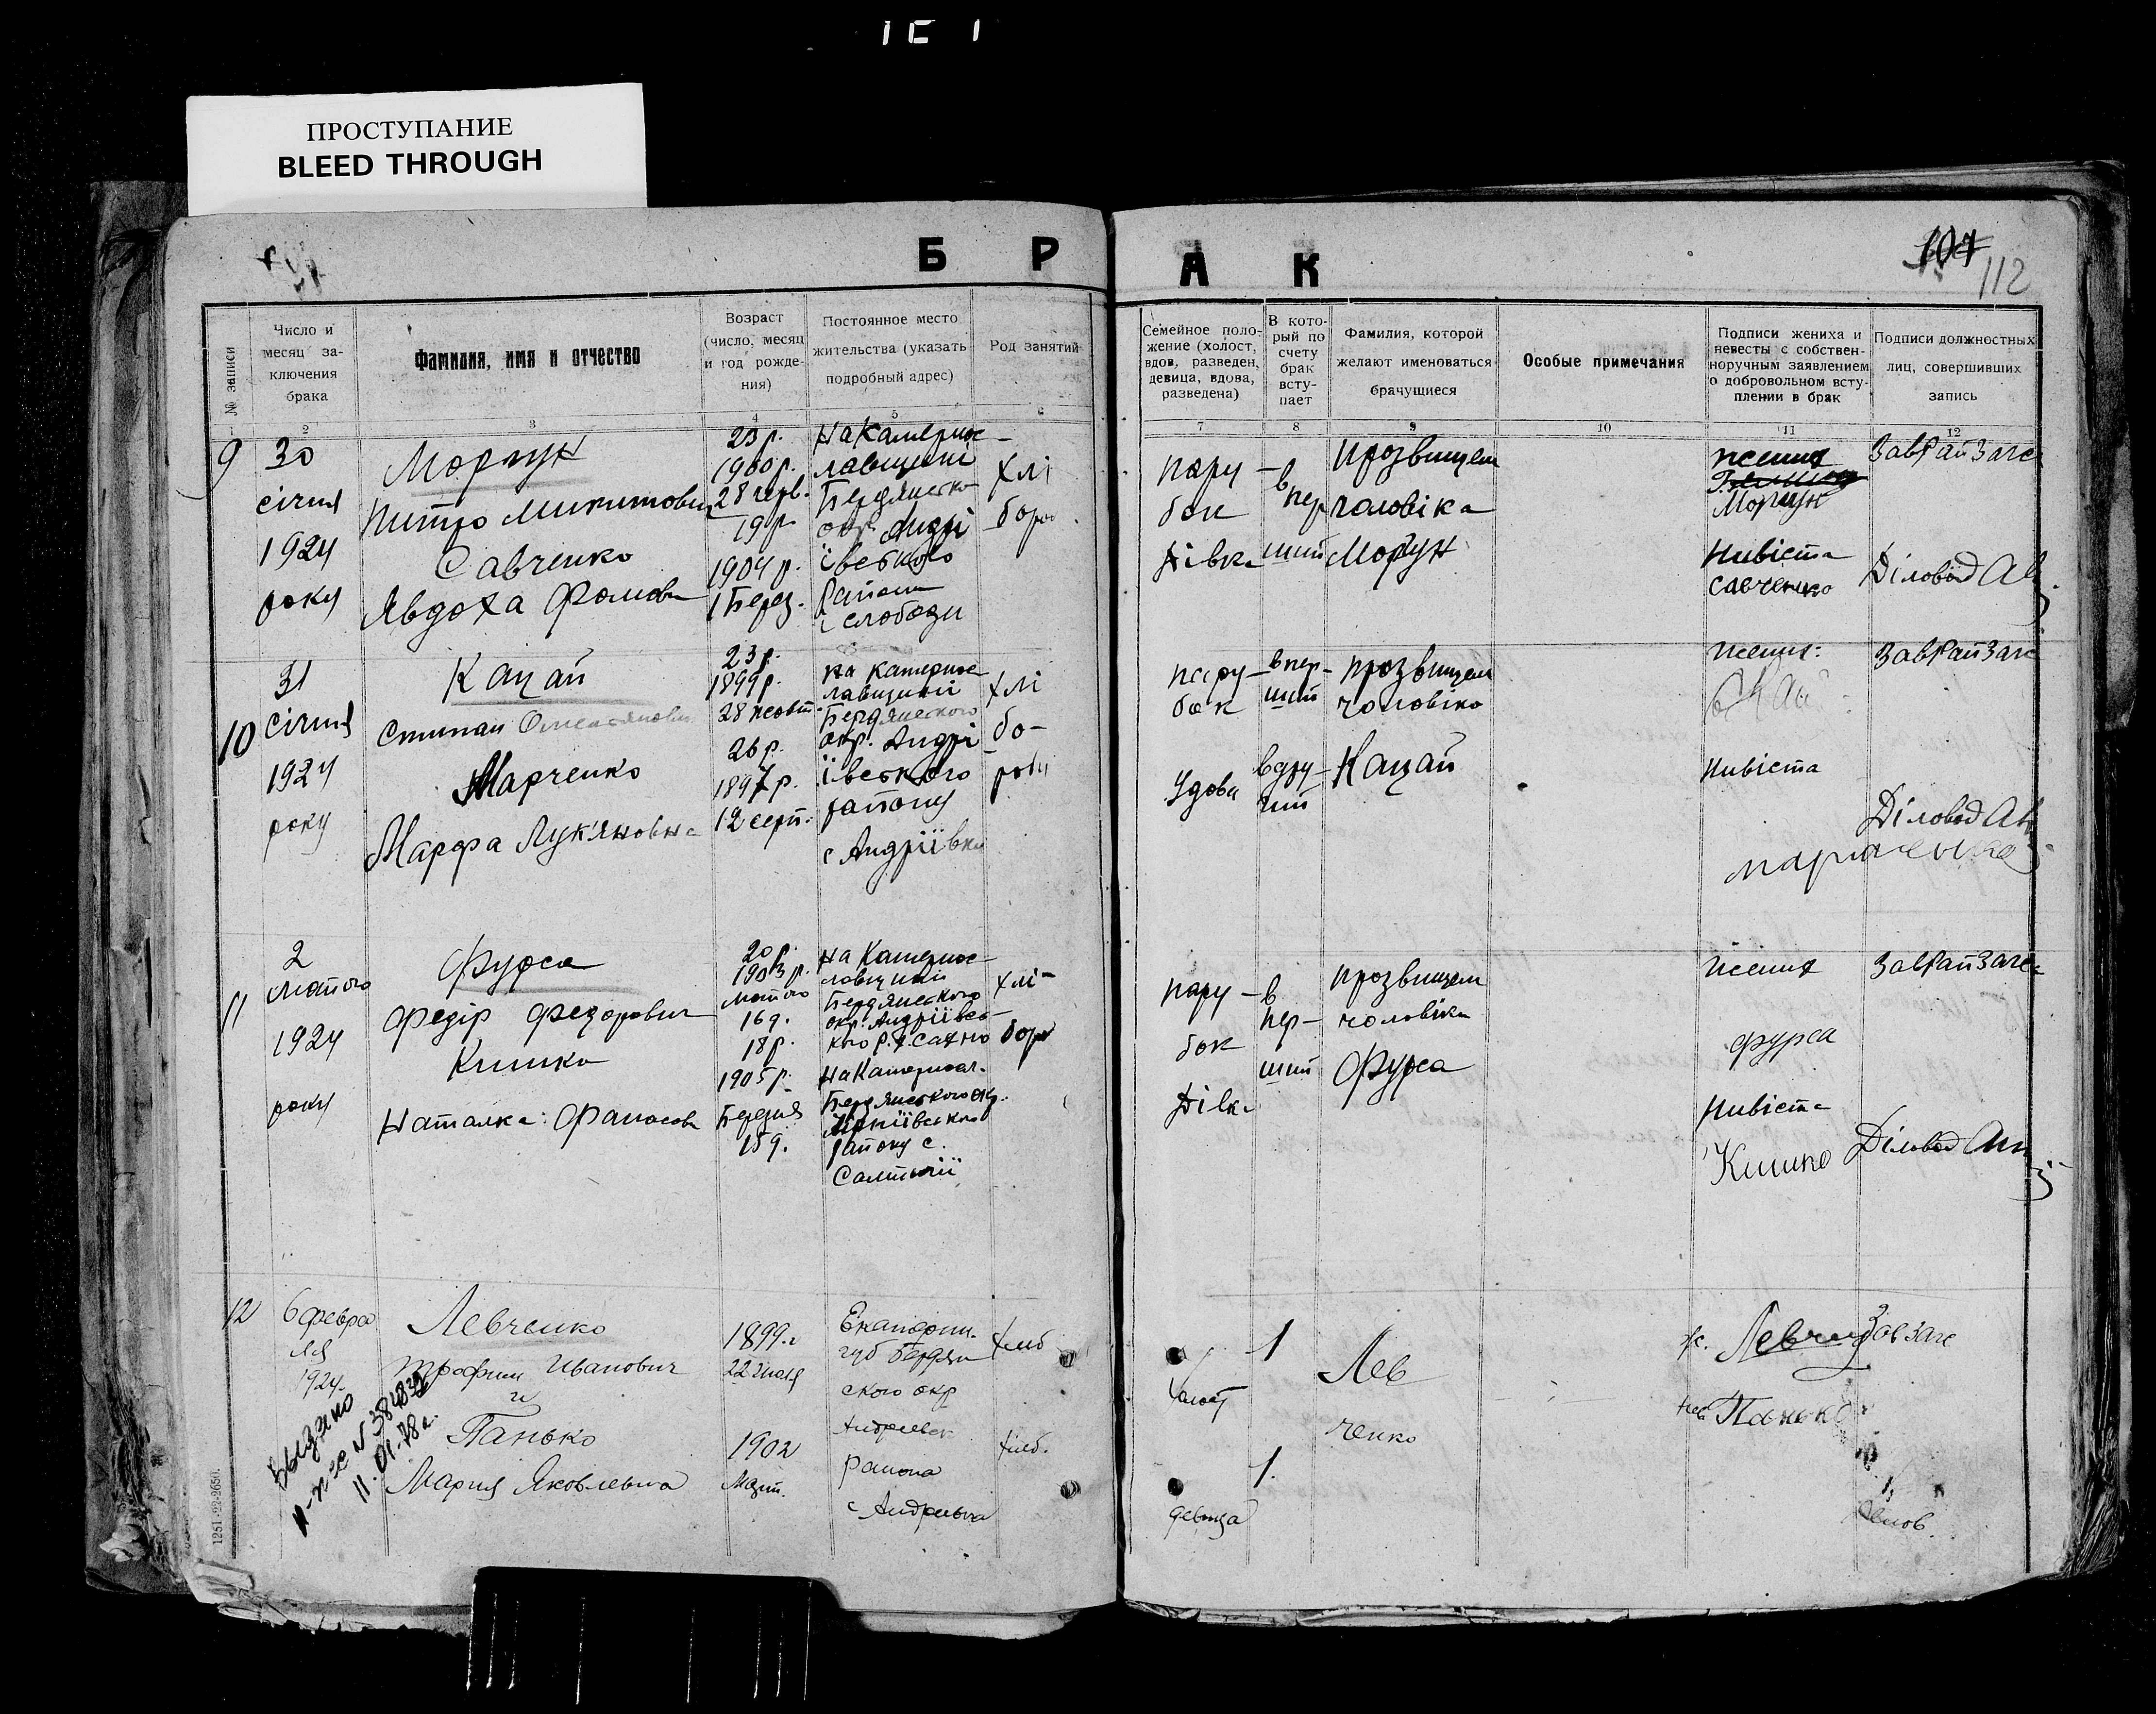 ПРОСТУПАНИЕ
BLEED THROUGH
Б Р А К
107
112
№ записи
Число и
месяц за-
ключения
брака
Фамилия, имя и отчество
Возраст
(число, месяц
и год рожде-
ния)
Постоянное место
жительства (указать
подробный адрес)
Род занятий
Семейное поло-
жение (холост,
вдов, разведен,
девица, вдова,
разведена)
В кото-
рый по
счету
брак
всту-
пает
Фамилия, которой
желают именоваться
брачущиеся
Особые примечания
Подписи жениха и
невесты с собствен-
норучным заявлением
о добровольном всту-
плении в брак
Подписи должностных
лиц, совершивших
запись
2 3 4 5 6 7 8 9 10 11 12
9
30
січня
1924
року
Моргун
Питро Микитович
Савченко
Явдоха Фомовн
23 р.
1900 р.
28 черв.
19 р.
1904 р.
1 Берез.
На Катеринос-
лавщині
Бердянсько
окр. Андрі
ївського
Району
слободи
хлі
бороб
пару-
бок
дівка
в
пер
ший
прозвищем
чоловіка
Моргун
жених
Моргун
нивіста
Савченко
ЗавРайЗагс
Діловод
10
31
січня
1924
року
Кацай
Степан Омелянович
Марченко
Марфа Лук'яновна
23 р.
1899 р.
28 жовт.
26 р.
1897 р.
12 серп.
На Катеринос-
лавщині
Бердянського
окр. Андрі
ївського
району
с Андріївки
хлі
бо-
роби
пару-
бок
удова
впер-
ший
вдру-
гий
прозвищем
чоловіка
Кацай
жених:
нивіста
марченко
ЗавРайЗагс
Діловод
11
2
лютого
1924
року
Фурса
Федір Федорович
Кишка
Наталка Фанасов
20 р.
1903 р.
лютого
16 д.
18 р.
1905 р.
Березня
15 д.
На Катеринос-
лавщині
Бердянського
окр. Андріївсь-
кого
На Катеринос.
Бердянського окр.
району с.
Салтичії
хлі-
бор
пару-
бок
дівка
в
пер-
ший
прозвищем
чоловіка
Фурса
жених
фурса
нивіста
Кишко
ЗавРайЗагс
Діловод
12
6 февра
ля
1924.
Левченко
Трофим Иванович
и
Панько
Мария Яковлевна
1899 г
22 июля
1902
Март.
Екатерин.
губ Бердян
ского окр
Андреевск
района
с Андреевка
хлеб
хлеб.
холост
девица
1
1.
Лев
ченко
ж.
нев
Панько
Зав загс
Выдано
11.01.78 г.
1251-22-2650.